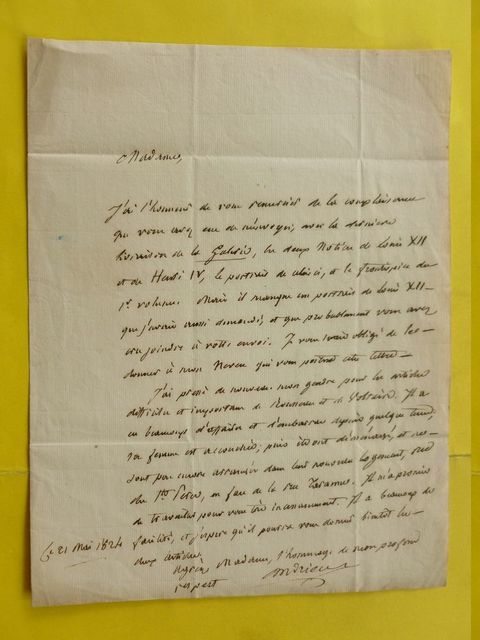 Madame,
J'ai l'honneur de vous remercier de la complaisance
que vous avez eue de m'envoyer, avec la dernière
livraison de la Galerie, les deux Notices de Louis XII
et de Henri IV, le portrait de et le frontispice du
1er volume. Mais il manque un portrait de Louis XII
que j'avais aussi demandé, et que probablement vous avez
cru joindre à votre envoi. Je vous serais obligé de le
donner à mon Neveu qui vous portera cette lettre
J'ai pressé de nouveau mon gendre pour les articles
difficiles et importans de Rousseau et de Voltaire. Il a
eu beaucoup d'affaires et d'embarras depuis quelque tems
sa femme est accouchée; puis ils ont déménagé, et ne
sont pas encore arrangés dans leur nouveau logement, rue
des Sts Pères, en face de la rue Taranne. Il m'a promis
de travailler pour vous très incessamment. Il a beaucoup de
facilité, et j'espère qu'il pourra vous donner bientôt les
deux articles
Agréez, Madame, l'hommage de mon profond
respect
Andrieux
Ce 21 Mai 1824